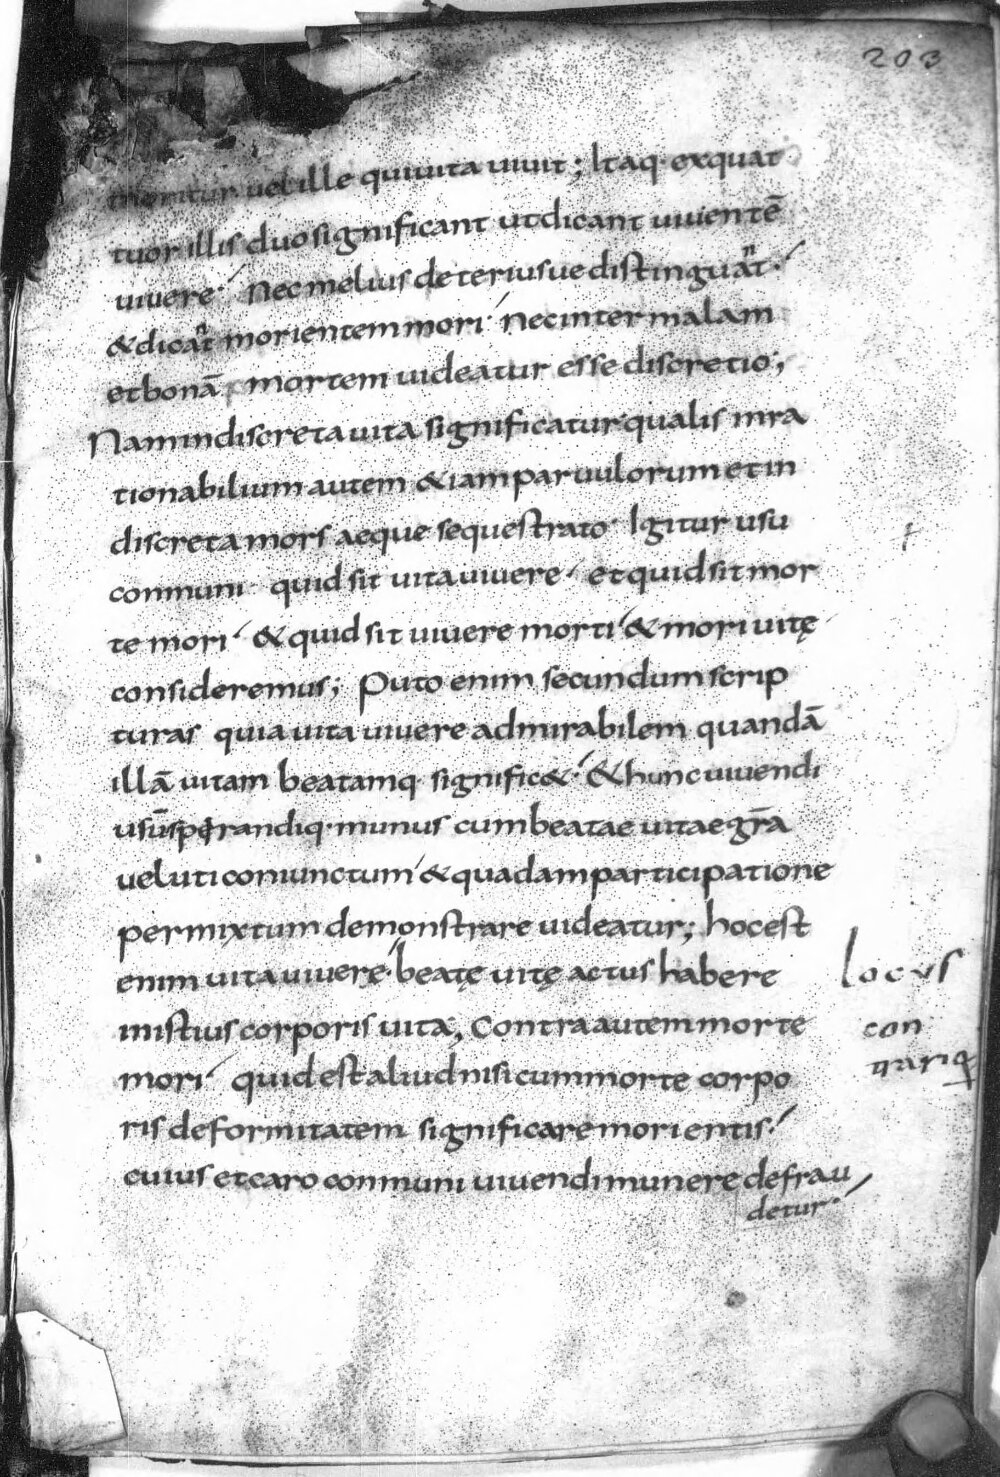 203
moritur uel ille qui uita uiuit; Itaq· ex quat
tuor illis duo significant ut dicant uiuientē
uiuere· Nec melius deteriusue distinguat·
& dicat morientem mori· Nec inter malam
et bonā mortem uideatur esse discretio;
Nam indiscreta uita significatur qualis inra
tionabilium autem & iam paruulorum et in
discreta mors aeque sequestrato· Igitur usu
communi· quid sit uita uiuere· et quid sit mor
te mori· & quid sit uiuere morti & mori uitę
consideremus; Puto enim secundum scrip
turas quia uita uiuere admirabilem quandā
illā uitam beatamq· signific&· & hunc uiuendi
usū sperandiq· munus cum beatae uitae gr̄a
ueluti coniunctum & quadam participatione
permixtum demonstrare uideatur; hoc est
enim uita uiuere· beatę uitę actus habere
istius corporis uita; Contra autem morte
mori· quid est aliud nisi cum morte corpo
ris deformitatem significare morientis·
cuius et caro communi uiuendi munere defrau
detur·
locus
con